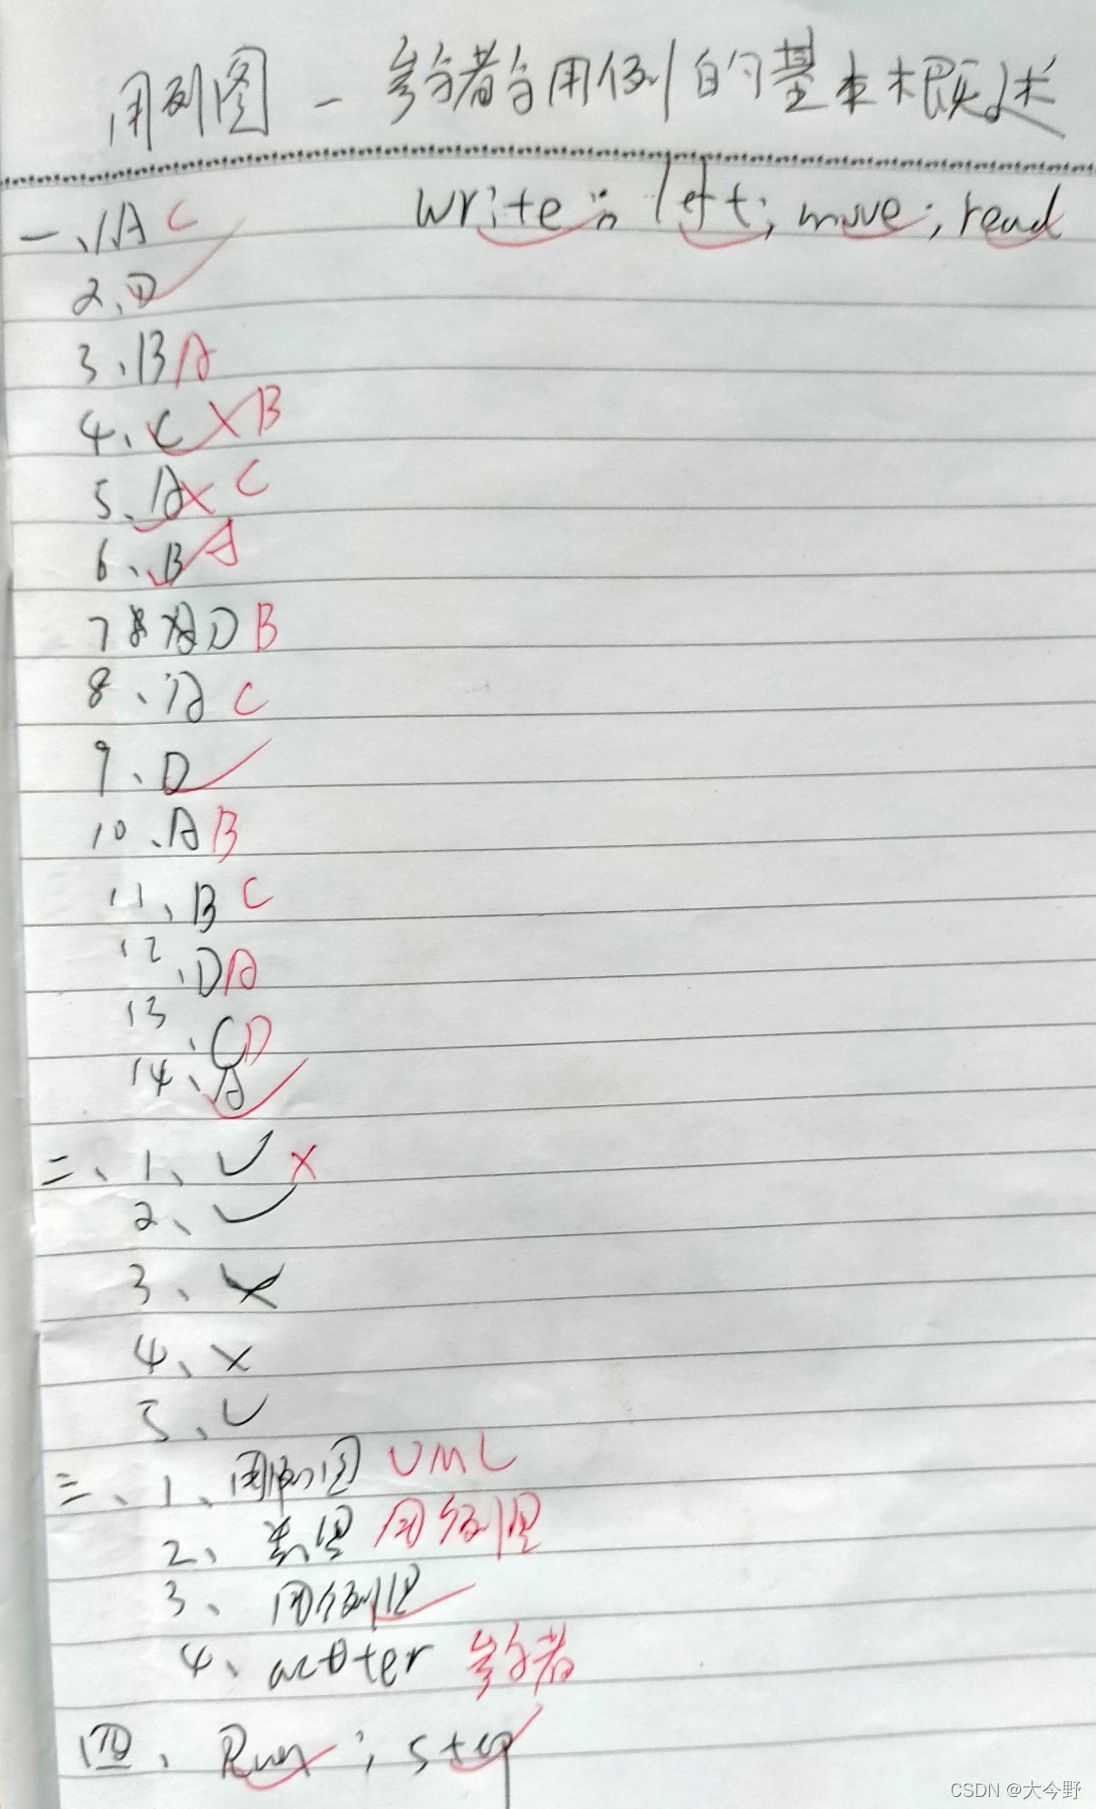 用例图-参与者与用例的基本概述
write; left; move; read
一、1.A C
2、D
3、B A
4、C X B
5、A X C
6、B A
7 D B
8、A C
9、D
10、A B
11、B C
12、D A
13、C D
14、A
二、1、✓ X
2、✓
3、X
4、X
5、✓
三、1、用例图 UML
2、用例图
3、用例图
4、 参与者
四、Run; step
CSDN @大今野